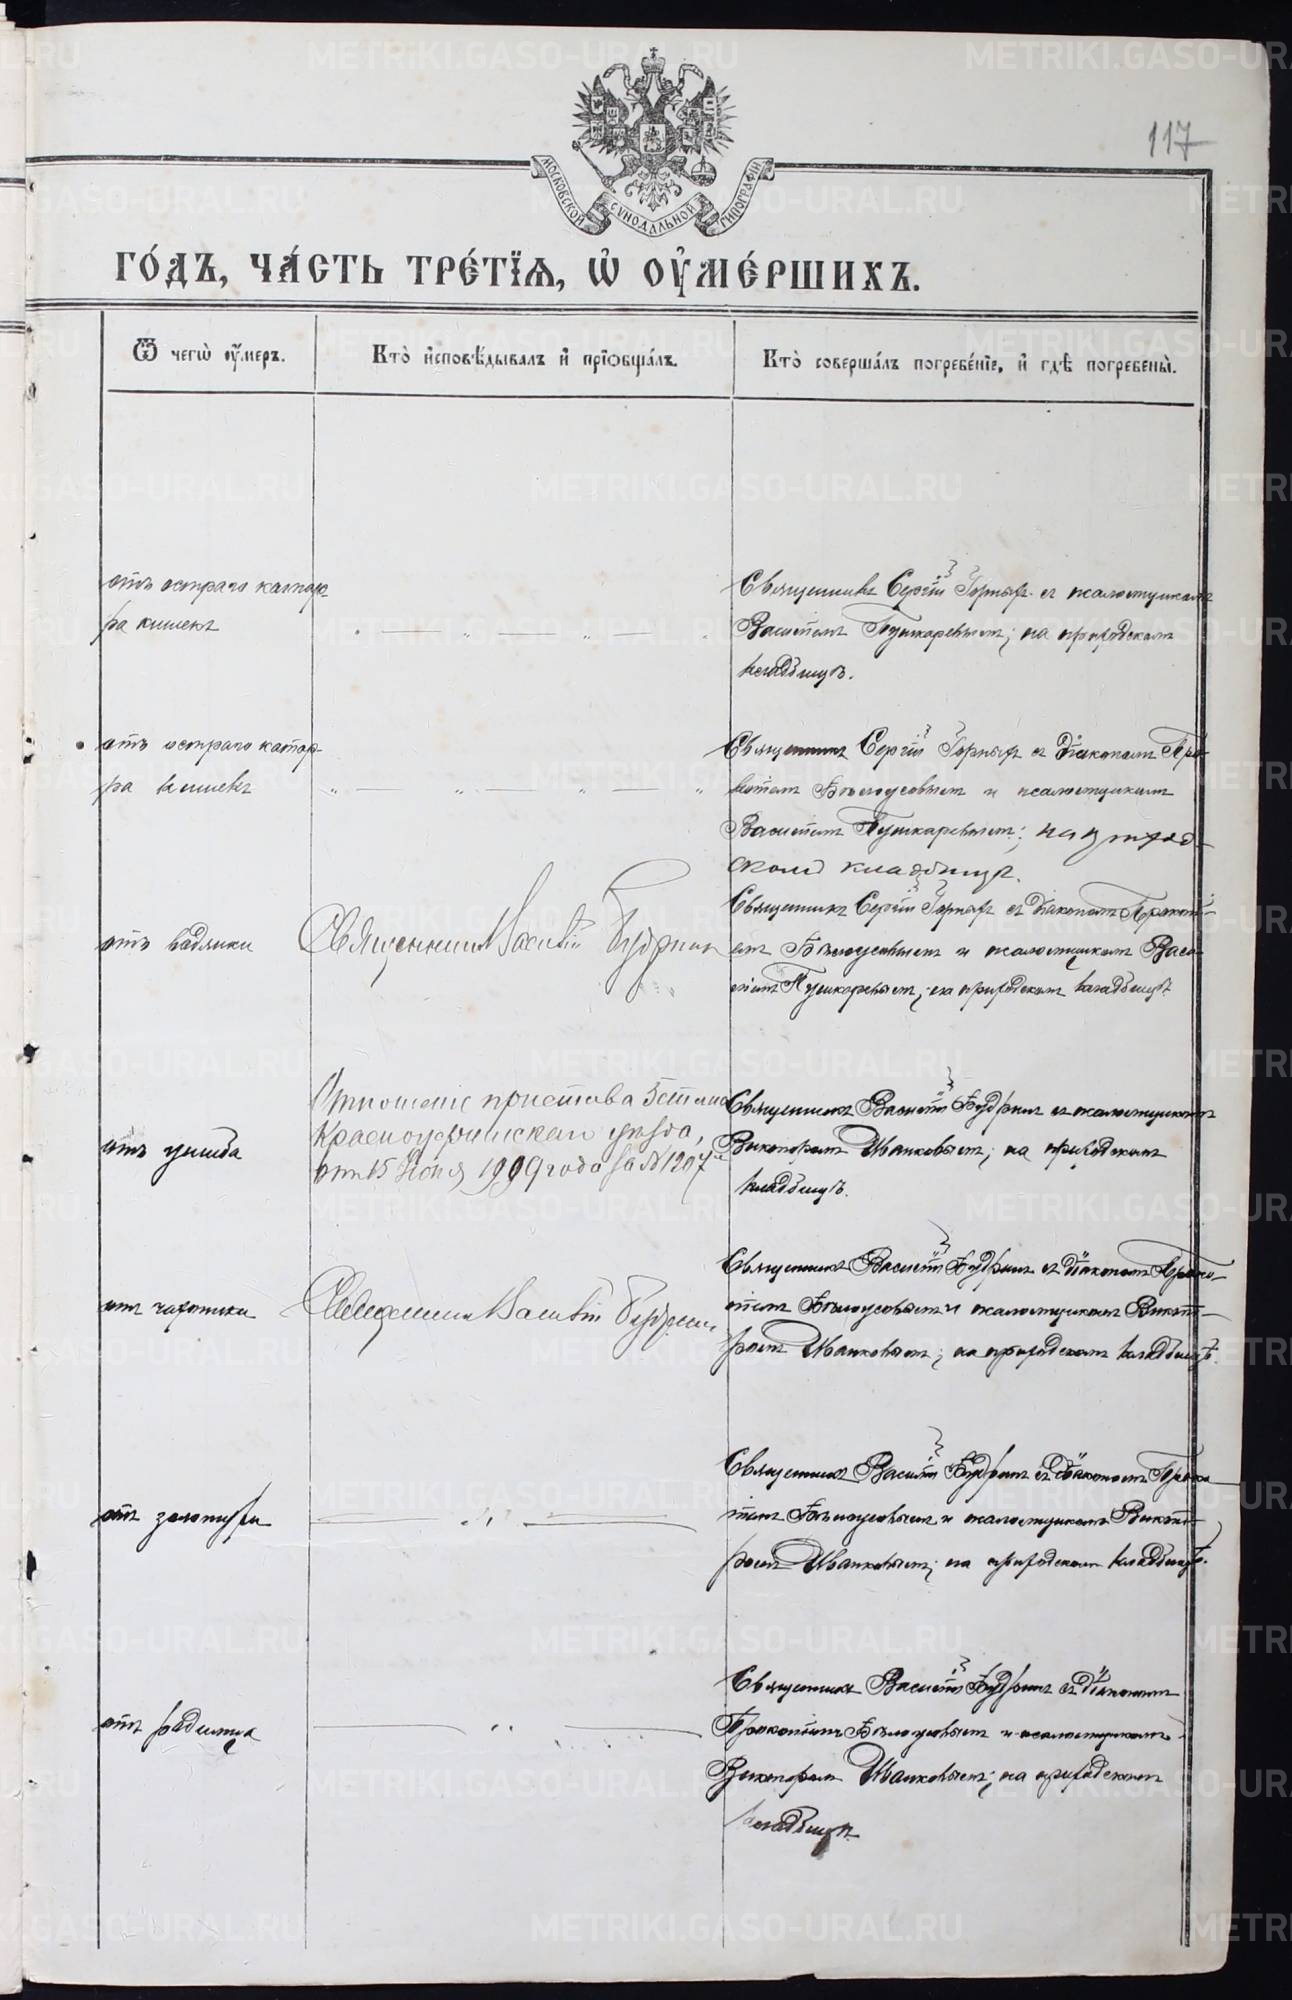 117
МОСКОВСКОЙ СѴНОДАЛЬНОЙ ТИПОГРАФІИ
ГО́ДЪ, ЧА́СТЬ ТРЕ́ТЇѦ, Ѡ҆ ОУ҆МЕ́РШИХЪ.
Ѿ чегѡ̀ оу҆́меръ.
Кто̀ и҆сповѣ́дывалъ и҆ прїѡбща́лъ.
Кто̀ соверша́лъ погребе́нїе, и҆ гдѣ̀ погребены̀.
отъ остраго катар-
ра кишекъ
Священникъ Сергій Горныхъ съ псаломщикомъ
Василіемъ Пушкаревымъ; на приходскомъ
кладбищѣ.
отъ остраго катар-
ра кишекъ
Священникъ Сергій Горныхъ съ діакономъ Про-
Бѣлоусовымъ и псаломщикомъ
Василіемъ Пушкаревымъ; на
кладбищѣ.
отъ водянки
Священникъ Василій Будринъ
Священникъ Сергій Горныхъ съ діакономъ Прокопі-
емъ Бѣлоусовымъ и псаломщикомъ Васи-
ліемъ Пушкаревымъ; на приходскомъ кладбищѣ.
отъ ушиба
Отношеніе пристава 5 стана
Красноуфимскаго уѣзда,
отъ 15 Іюня 1909 года за № 1207
Священникъ Василій Будринъ съ псаломщикомъ
Викторомъ Иванковымъ; на приходскомъ
кладбищѣ.
отъ чахотки
Священникъ Василій Будринъ
Священникъ Василій Будринъ съ діакономъ Проко-
піемъ Бѣлоусовымъ и псаломщикомъ Викто-
ромъ Иванковымъ; на приходскомъ кладбищѣ.
отъ золотухи
Священникъ Василій Будринъ съ діакономъ Проко-
піемъ Бѣлоусовымъ и псаломщикомъ Викто-
ромъ Иванковымъ; на приходскомъ кладбищѣ.
отъ родимца
Священникъ Василій Будринъ съ діакономъ
Прокопіемъ Бѣлоусовымъ и псаломщикомъ
Викторомъ Иванковымъ; на приходскомъ
кладбищѣ.
METRIKI.GASO-URAL.RU